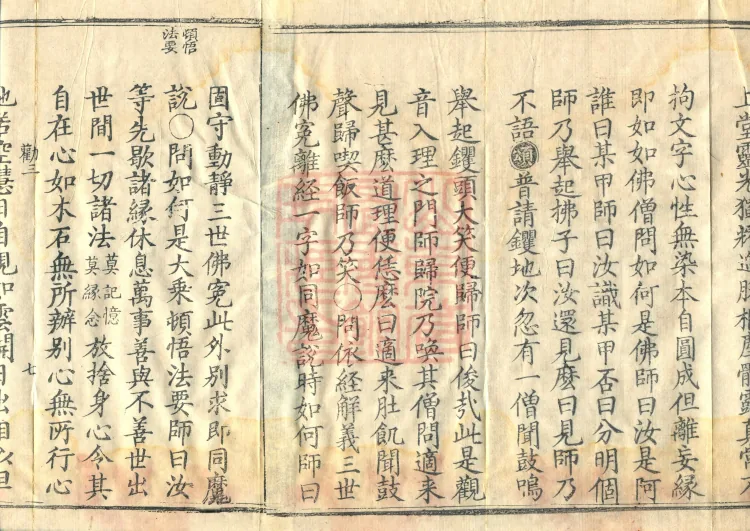 拘文字心性無染本自圓成但離妄緣
即如如佛僧問如何是佛師曰汝是阿
誰曰某甲師曰汝識某甲否曰分明個
師乃舉起拂子曰汝還見麼曰見師乃
不語頌普請钁地次忽有一僧聞鼓鳴
舉起钁頭大笑便歸師曰俊㢤此是觀
音入理之門師歸院乃喚其僧問適來
見甚麼道理便恁麼曰適來肚飢聞鼓
聲歸喫飯師乃笑○問依經解義三世
佛冤離經一字如同魔說時如何師曰
頓悟
法要
固守動靜三世佛冤此外別求即同魔
說○問如何是大乘頓悟法要師曰汝
等先歇諸緣休息萬事善與不善世出
世間一切諸法莫記憶莫緣念放捨身心令其
自在心如木石無所辨別心無所行心
勸三
七
地若空慧日自現如雲開日出相似但